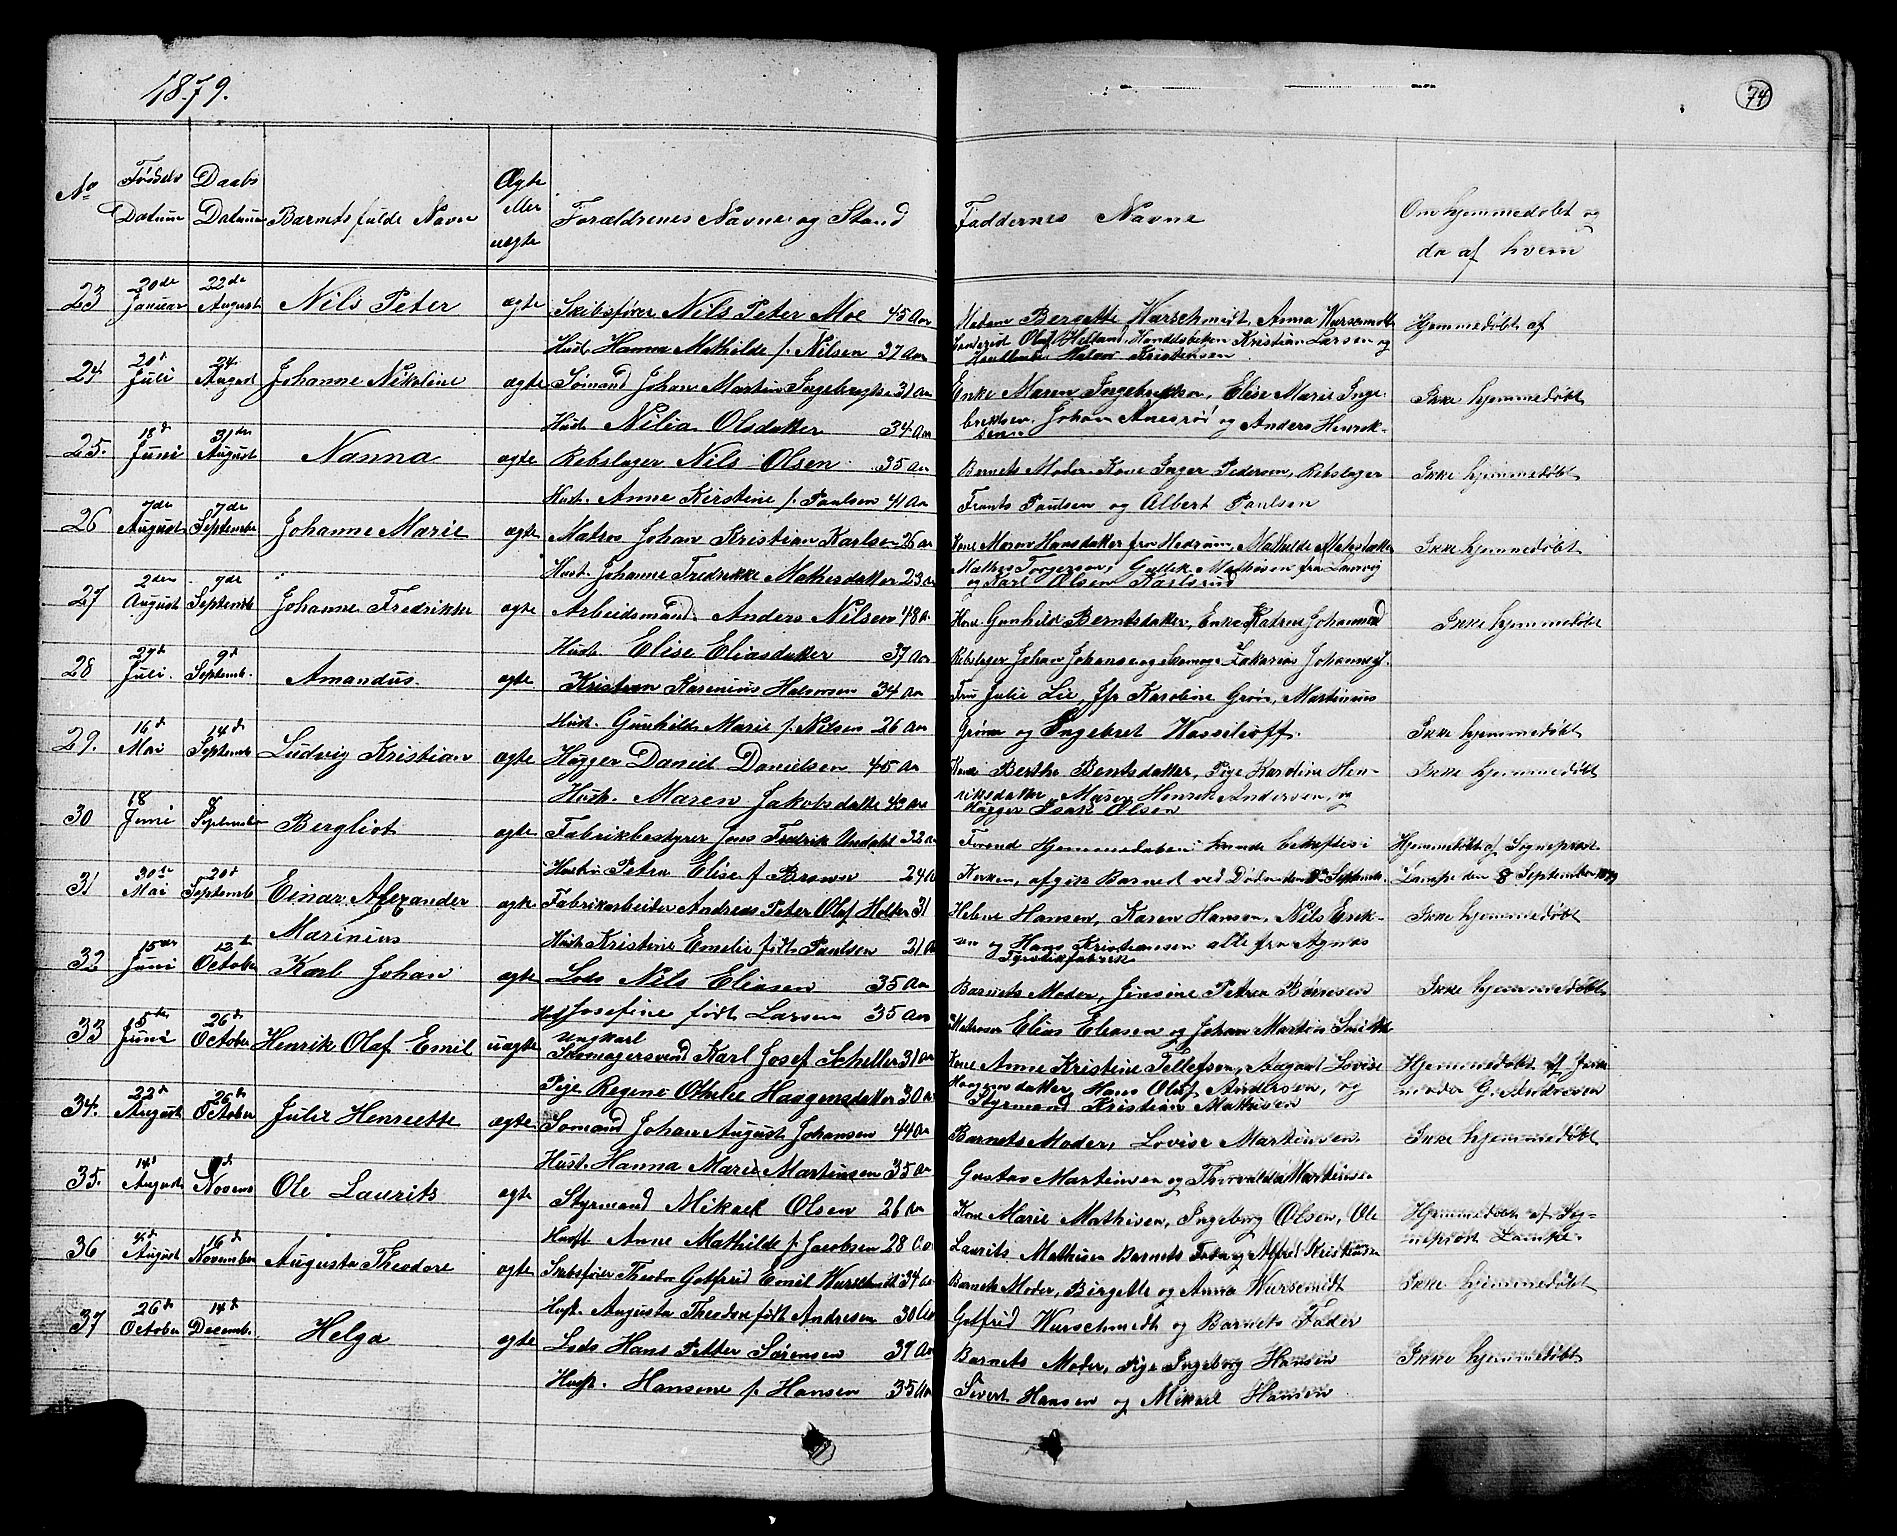 1879.
74
No Fødsels Datum Daabs Datum Barnets fulde Navn Ægte eller uægte Forældrenes Navne og Stand Faddernes Navne Om hjemmedøbt og da af hvem
23 20de Januar 22de August Nils Peter ægte Skibsfører Nils Peter Moe 45 Aar
Hust. Hanna Mathilde f. Nilsen 37 Aar
Madam Bergette Wurschmidt, Anna Wursemidt
Olaf Helland, Kristian Larsen og
Kristensen
Hjemmedøbt af
24 20d Juli 24 August Johanne Nikoline ægte Sømand Johan Martin Ingebregtsen 31 Aar
Hust. Nilia Olsdatter 34 Aar
Enke Maren Ingebrektsen, Elise Marie Inge-
brektsen, Johan Anesrød og Anders Henrik-
sen
Ikke hjemmedøbt
25. 18d Juni 31te August Nanna ægte Rebslager Nils Olsen 35 Aar
Hust. Anne Kirstine f. Paulsen 41 Aar
Barnets Moder, Kone Inger Pedersen, Rebslager
Frants Paulsen og Albert Paulsen
Ikke hjemmedøbt
26 7de August 7de September Johanne Marie ægte Matros Johan Kristian Karlsen 26 Aar
Hust. Johanne Fredrikke Mathisdatter 23 Aar
Kone Maren Hansdatter fra Hedrum, Mathilde Mathisdatter
Mathias Torgersen, Gullik Mathisen fra Laurvig
og Karl Olsen Karlsrud
Ikke hjemmedøbt
27 2den August 7de September Johanne Fredrikke ægte Arbeidsmand Anders Nilsen 48 Aar
Hust. Elise Eliasdatter 37 Aar
Kone Gunhild Berntsdatter, Enke Katrine Johannesd
Rebslager Johan Johansen og Skomager Zakarias Johannes.
Ikke hjemmedøbt
28 29de Juli. 9d Septemb. Amandus. ægte Kristian Karenius Halvorsen 34 Aar
Hust. Gunhilde Marie f. Nilsen 26 Aar
Fru Julie Lie, Jfr Karoline Grøn, Martinius
Grønn og Engebret Hasselhoff.
Ikke hjemmedøbt
29. 16d Mai 14d Septemb Ludvig Kristian ægte Høgger Daniel Danielsen 45 Aar
Hust. Maren Jakobsdatter 42 Aar
Kone Berthe Berntsdatter, Pige Karoline Hen-
riksdatter, Murer Henrik Andersen, og
Høgger Isak Olsen
Ikke hjemmedøbt
30 18 Juni 8 September Bergliot ægte Fabrikbestyrer Jens Fredrik Undahl 32 Aar
Hustru Petra Elise f. Brown 24 Aar
Forend Hjemmedaaben kunde bekreftes i
Kirken, afgik Barnet ved Døden den September.
Hjemmedøbt af Sogneprest
Lampe den 8 September 1879
31 30te Mai 20d Septemb Einar Alexander ægte Fabrikarbeider Andreas Peter Olaf Holter 31
Marinius
Hust. Kristine Emelie født Paulsen 21 Aar
Helene Hansen, Karen Hansen, Nils Erik-
sen og Hans Kristiansen alle fra Agnes
Fyrstikfabrik
Ikke hjemmedøbt
32 15de Juni 12te October Karl Johan ægte Lods Nils Eliasen 35 Aar
Hust. Josefine født Larsen 35 Aar
Barnets Moder, Jensine Petrea Børresen
Matroser Elias Eliasen og Johan Martin Smitt
Ikke hjemmedøbt
33 5te Juni 26d October Henrik Olaf Emil uægte Ungkarl
Skomagersvend Karl Josef Scheller 31 Aar
Pige Regene Othelie Haagensdatter 30 Aar
Kone Anne Kristine Tellefsen, August Lovise
Haagensdatter, Hans Olaf Andersen, og
Styrmand Kristian Mathisen
Hjemmedøbt af Jorde-
moder G. Andresen
34. 22d August 26d October Julie Henriette ægte Sømand Johan August Johansen 44 Aar
Hust. Hanna Marie Martinsen 35 Aar
Barnets Moder, Lovise Martinsen
Gustav Martinsen og Thorvald Martinsen
Ikke hjemmedøbt
35. 14d August 9d Novemb Ole Laurits ægte Styrmand Mikael Olsen 26 Aar
Hust. Anne Mathilde f. Jacobsen 28 Aar
Kone Marie Mathisen, Ingeborg Olsen, Ole
Laurits Mathisen Barnets Fader og Alfred Kristiansen
Hjemmedøbt af Sog-
neprest Lampe.
36 4d August 16d November Augusta Theodore ægte Skibsfører Theodor Gotfred Emil Wurschmidt 34 Aar
Hust. Augusta Theodore født Andresen 30 Aar
Barnets Moder, Birgette og Anna Wursemidt
Gotfred Wurschmidt og Barnets Fader
Ikke hjemmedøbt
37 26d October 14d Decemb. Helga ægte Lods Hans Petter Sørensen 39 Aar
Hust. Hansine f. Hansen 35 Aar
Barnets Moder, Pige Ingeborg Hansen
Sivert Hansen og Mikael Hansen
Ikke hjemmedøbt